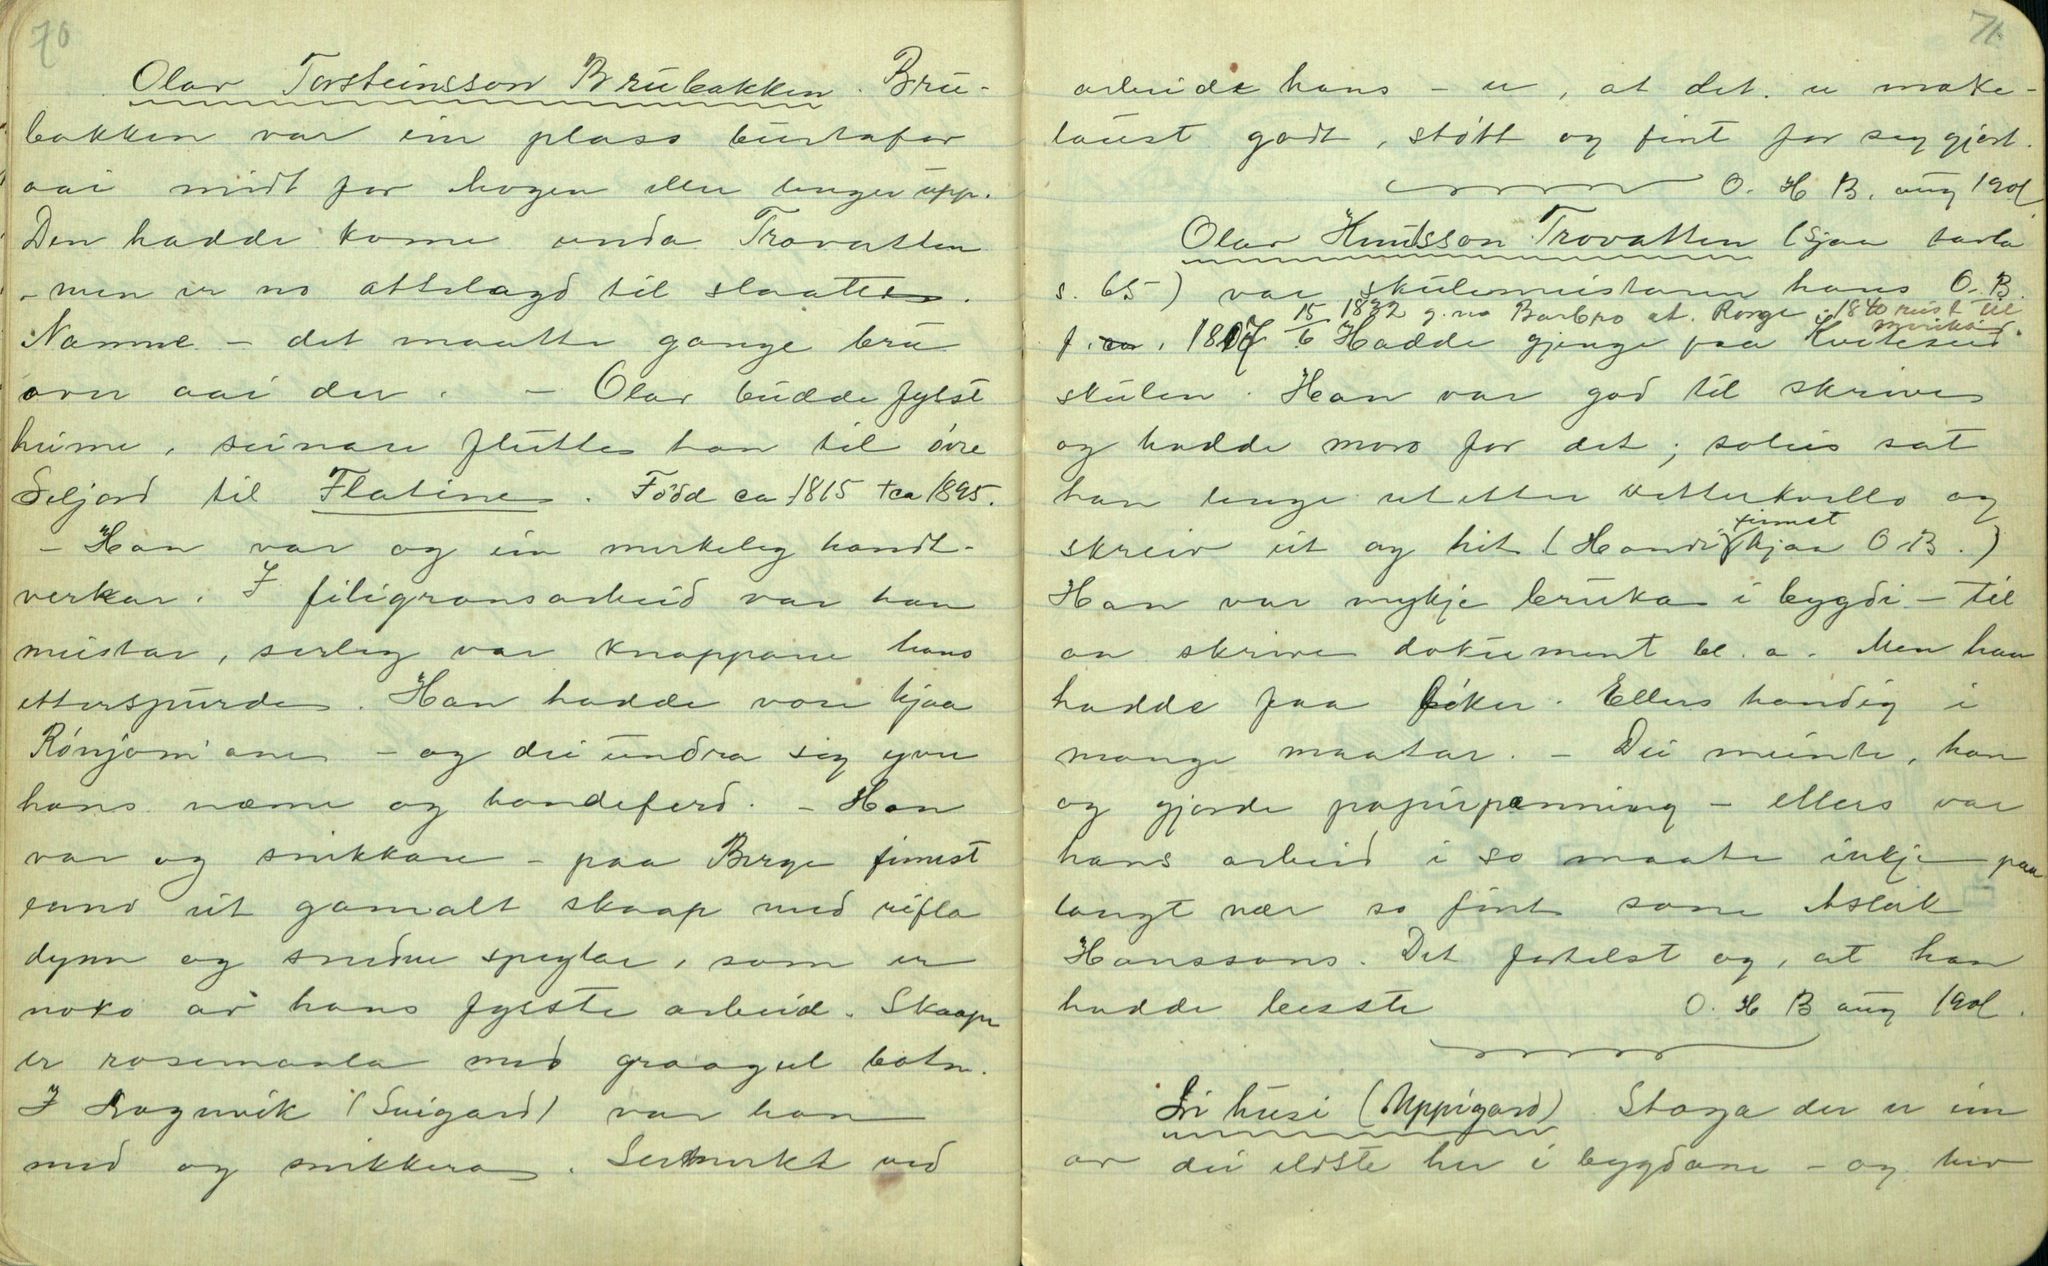 70
Olav Torsteinsson Brubakken. Bru-
bakken var ein plass burtafor
aai midt for haugen eller lenger upp.
Den hadde kome unda Trovatten
- men er no attelagd til slaatte.
Namne - det maatte gange bru
over aai der. - Olav budde fyrst
heime, seinare flutte han til övre
Seljord til Flatine. Född ca 1815 † ca 1895.
- Han var og ein merkeleg handt-
verkar. I filigransarbeid var han
meistar, serleg var knappane hans
etterspurde. Han hadde vore hjaa
Rónjom'ane - og dei undra seg yver
hans næme og handeferd. - Han
var og snikkare - paa Berge finnst
enno eit gamalt skaap med rifla
dynn og snidne speglar, som er
noko av hans fyrste arbeid. Skaape
er rosemaala med graagul botn.
I Ragnvik (Suigard) var han
med og snikkera. Sermerkt ved
71
arbeide hans - er, at det er make-
laust godt, støtt og fint for seg gjort.
O. H B. aug 1901
Olav Knutsson Trovatten (sjaa tavla
s. 65) var skulemeistaren hans O. B.
15/6 1832 g. m Barbro at. Berge, 1840 reist til
f. ca. 1807 Hadde gjenge paa Kviteseid
skulen. Han var god til skrive
og hadde moro for det; soleis sat
han lenge utetter vetterkvello og
skreiv eit og hit (Handi finnst hjaa O.B.)
Han var mykje bruka i bygdi - til
aa skrive dokument bl. a. Men han
hadde faa bøker. Ellers handig i
mange maatar. - Dei meinte, han
og gjorde papirpenning - ellers var
hans arbeid i so maate inkje paa
langt nær so fint som Aslak
Hanssons. Det fortelst og, at han
hadde beste O. H B aug 1901.
husi (Uppigard) Stoga der er ein
av dei eldste her i bygdane - og hev